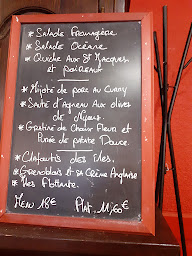 * Salade Fromagère.
* Salade Océane
* Quiche Aux St Jacques
et poireaux
* Mijoté de porc au Curry
* Sauté d'Agneau Aux olives
de Nyons
* Gratiné de Choux Fleur et
Purée de patate Douce.
* Clafoutis des îles.
* Grenoblois et sa Crème Anglaise
* Iles Flottante.
Menu 18€ Plat 11,60€